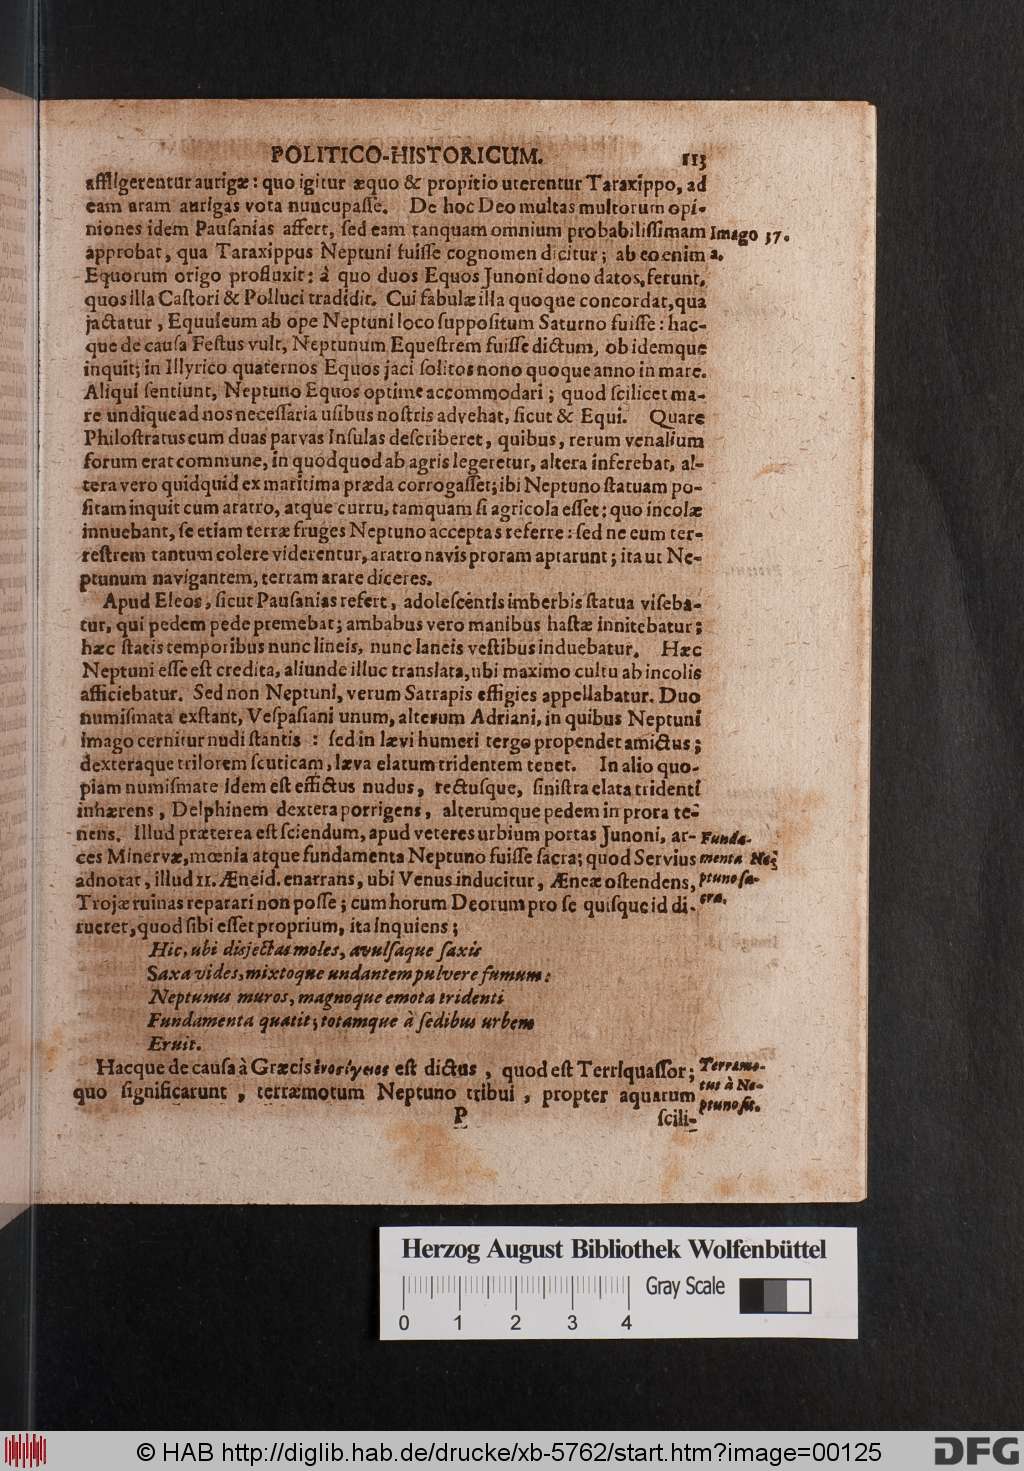 POLITICO-HISTORICUM. 113
affligerentur aurigæ: quo igitur æquo & propitio uterentur Taraxippo, ad
eam aram aurigas vota nuncupaſſe. De hoc Deo multas multorum opi-
niones idem Pauſanias affert, ſed eam tanquam omnium probabiliſſimam
Imago 37.
approbat, qua Taraxippus Neptuni fuiſſe cognomen dicitur; ab eo enim
a.
Equorum origo profluxit: à quo duos Equos Junoni dono datos, ferunt,
quos illa Caſtori & Polluci tradidit. Cui fabulæ illa quoque concordat, qua
jactatur, Equuleum ab ope Neptuni loco ſuppoſitum Saturno fuiſſe: hac-
que de cauſa Feſtus vult, Neptunum Equeſtrem fuiſſe dictum, ob idemque
inquit; in Illyrico quaternos Equos jaci ſolitos nono quoque anno in mare.
Aliqui ſentiunt, Neptuno Equos optime accommodari; quod ſcilicet ma-
re undique ad nos neceſſaria uſibus noſtris advehat, ſicut & Equi. Quare
Philoſtratus cum duas parvas Inſulas deſcriberet, quibus, rerum venalium
forum erat commune, in quod quod ab agris legeretur, altera inferebat, al-
tera vero quidquid ex maritima præda corrogaſſet; ibi Neptuno ſtatuam po-
ſitam inquit cum aratro, atque curru, tamquam ſi agricola eſſet: quo incolæ
innuebant, ſe etiam terræ fruges Neptuno acceptas referre: ſed ne eum ter-
reſtrem tantum colere viderentur, aratro navis proram aptarunt; ita ut Ne-
ptunum navigantem, terram arare diceres.
Apud Eleos, ſicut Pauſanias refert, adoleſcentis imberbis ſtatua viſeba-
tur, qui pedem pede premebat; ambabus vero manibus haſtæ innitebatur;
hæc ſtatis temporibus nunc lineis, nunc laneis veſtibus induebatur. Hæc
Neptuni eſſe eſt credita, aliunde illuc translata, ubi maximo cultu ab incolis
afficiebatur. Sed non Neptuni, verum Satrapis effigies appellabatur. Duo
numiſmata exſtant, Veſpaſiani unum, alterum Adriani, in quibus Neptuni
imago cernitur nudi ſtantis : ſed in lævi humeri tergo propendet amictus;
dexteraque trilorem ſcuticam, læva elatum tridentem tenet. In alio quo-
piam numiſmate idem eſt effictus nudus, rectuſque, ſiniſtra elata tridenti
inhærens, Delphinem dextera porrigens, alterumque pedem in prora te-
nens. Illud præterea eſt ſciendum, apud veteres urbium portas Junoni, ar-
Funda-
ces Minervæ, mœnia atque fundamenta Neptuno fuiſſe ſacra; quod Servius
menta Ne-
adnotat, illud 11. Æneid. enarrans, ubi Venus inducitur, Æneæ oſtendens,
ptuno ſa-
Trojæ ruinas reparari non poſſe; cum horum Deorum pro ſe quiſque id di-
cra.
rueret, quod ſibi eſſet proprium, ita inquiens;
Hic, ubi disjectas moles, avulſaque ſaxis
Saxa vides, mixtoque undantem pulvere fumum:
Neptunus muros, magnoque emota tridenti
Fundamenta quatit; totamque à ſedibus urbem
Eruit.
Hacque de cauſa à Græcis ἐνοσίγειος eſt dictus, quod eſt Terriquaſſor;
Terramo-
tus à Ne-
quo ſignificarunt, terræmotum Neptuno tribui, propter aquarum
ptuno fit.
P ſcili-
Herzog August Bibliothek Wolfenbüttel
Gray Scale
0 1 2 3 4
© HAB http://diglib.hab.de/drucke/xb-5762/start.htm?image=00125
DFG